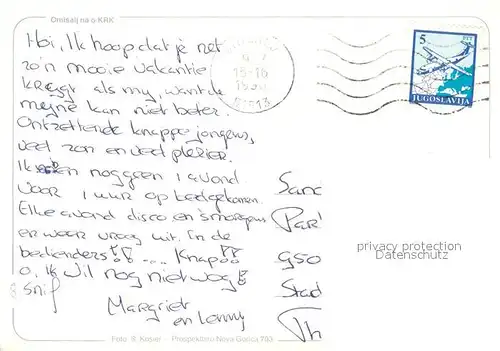 Omisalj na o KRK
Hoi, Ik hoop dat je net
zo'n mooie vakantie
krijgt als my, want de
mijne kan niet beter.
Ontzettende knappe jongens,
veel zon en veel plezier.
Ik nog geen 1 avond
voor 1 uur op bed gekomen.
Elke avond disco en 's morgens
er weer vroeg uit. En de
bedienders!! .... Knap!!
o, Ik wil nog niet weg!
Snif
Margriet
en Lenny
5 PTT
JUGOSLAVIJA
15-16
51513
Sand
Par
950
Stad
Th
privacy protection
Datenschutz
Foto: Prospektbiro Nova Gorica 703